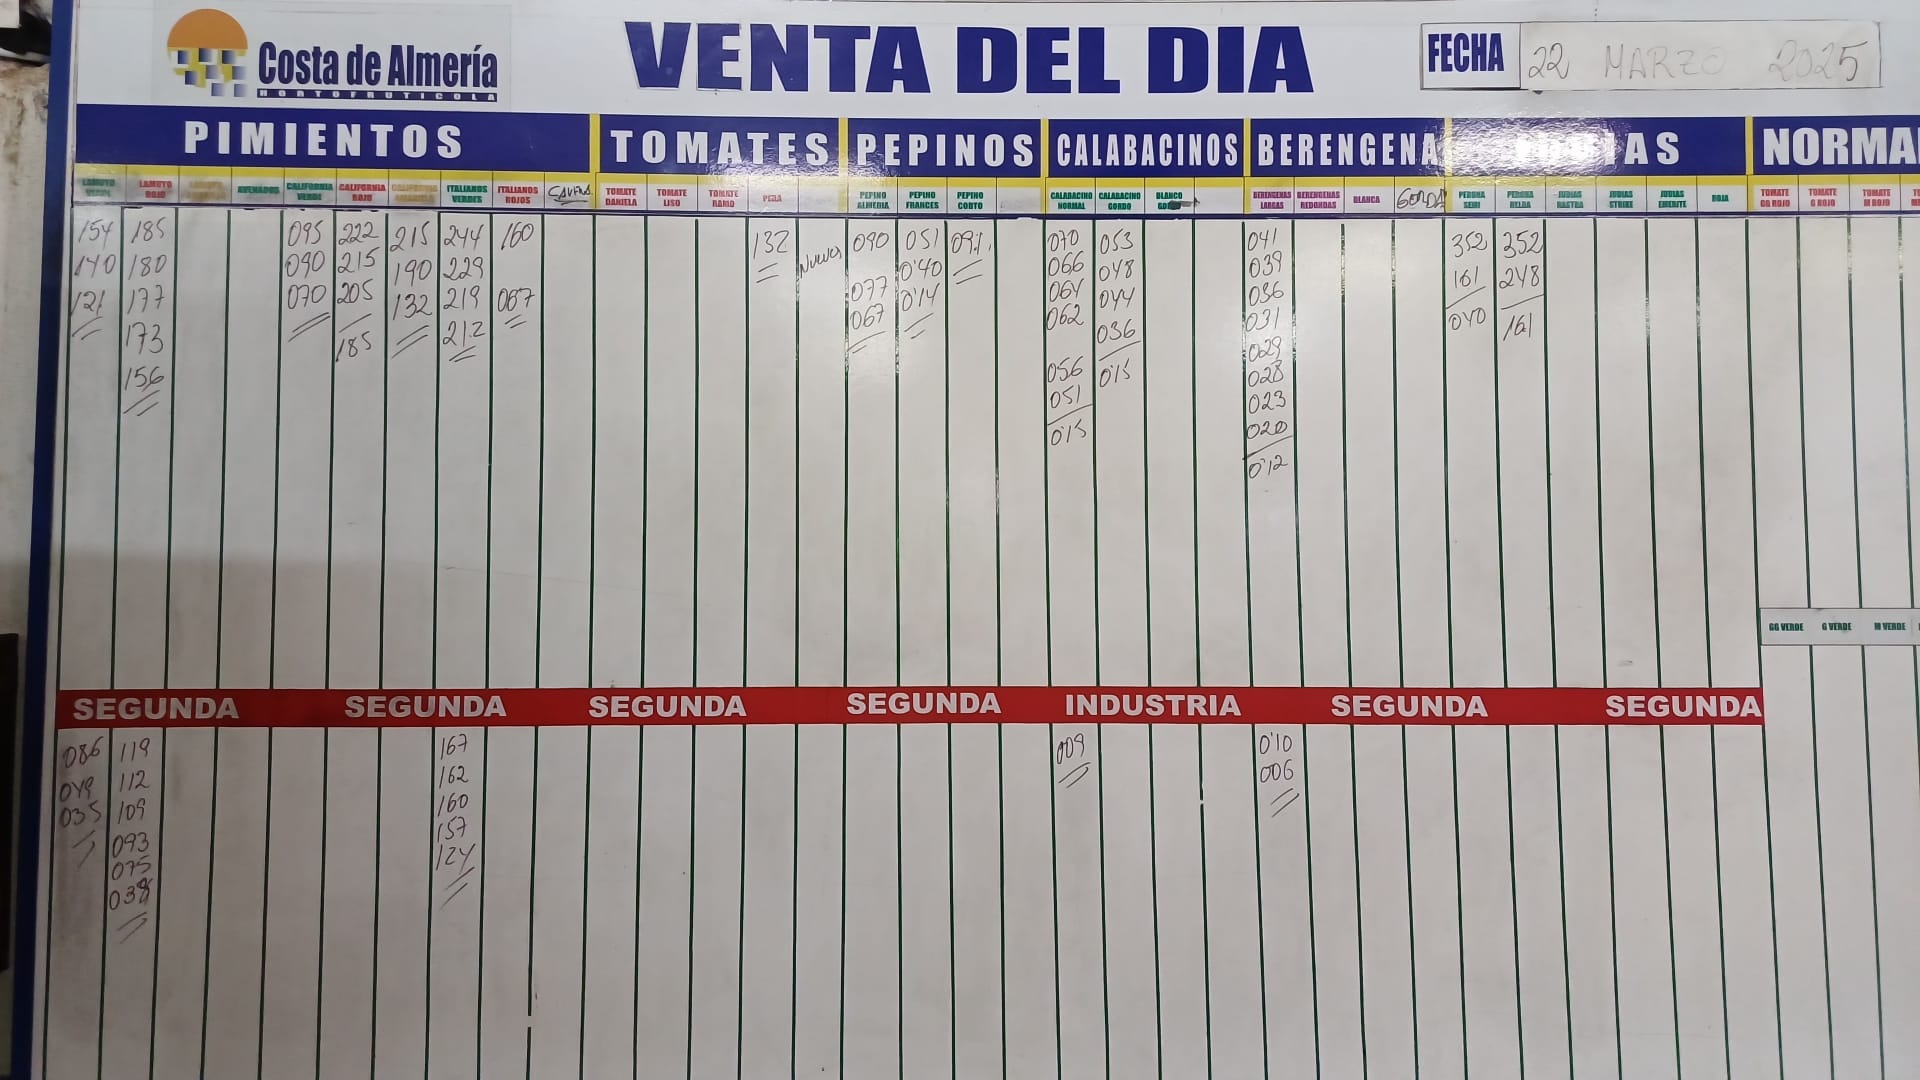 Costa de Almería
HORTOFRUTICOLA
VENTA DEL DIA
FECHA 22 MARZO 2025
PIMIENTOS TOMATES PEPINOS CALABACINOS BERENGENA IAS NORMA
LAMUYO ROJO
CALIFORNIA VERDE
CALIFORNIA ROJO
ITALIANOS VERDES
ITALIANOS ROJOS
TOMATE DANIELA
TOMATE LISO
TOMATE RAMO
PERA
PEPINO ALMERIA
PEPINO FRANCES
PEPINO CORTO
CALABACINO NORMAL
CALABACINO GORDO
BLANCO
BERENGENAS LARGAS
BERENGENAS REDONDAS
BLANCA
GORDA
PERONA SEMI
PERONA HELDA
JUDIAS RASTRA
JUDIAS STRIKE
JUDIAS EMERITE
ROJA
TOMATE GG ROJO
TOMATE G ROJO
TOMATE M ROJO
154
140
121
185
180
177
173
156
095
090
070
222
215
205
185
215
190
132
244
229
219
212
160
067
132
090
077
067
051
0'40
0'14
091
070
066
064
062
056
051
0'15
053
048
044
036
0'15
041
039
036
031
029
028
023
020
0'12
352
161
040
352
248
161
GG VERDE G VERDE M VERDE
SEGUNDA SEGUNDA SEGUNDA SEGUNDA INDUSTRIA SEGUNDA SEGUNDA
086
049
035
119
112
109
093
075
038
167
162
160
157
124
009
0'10
006